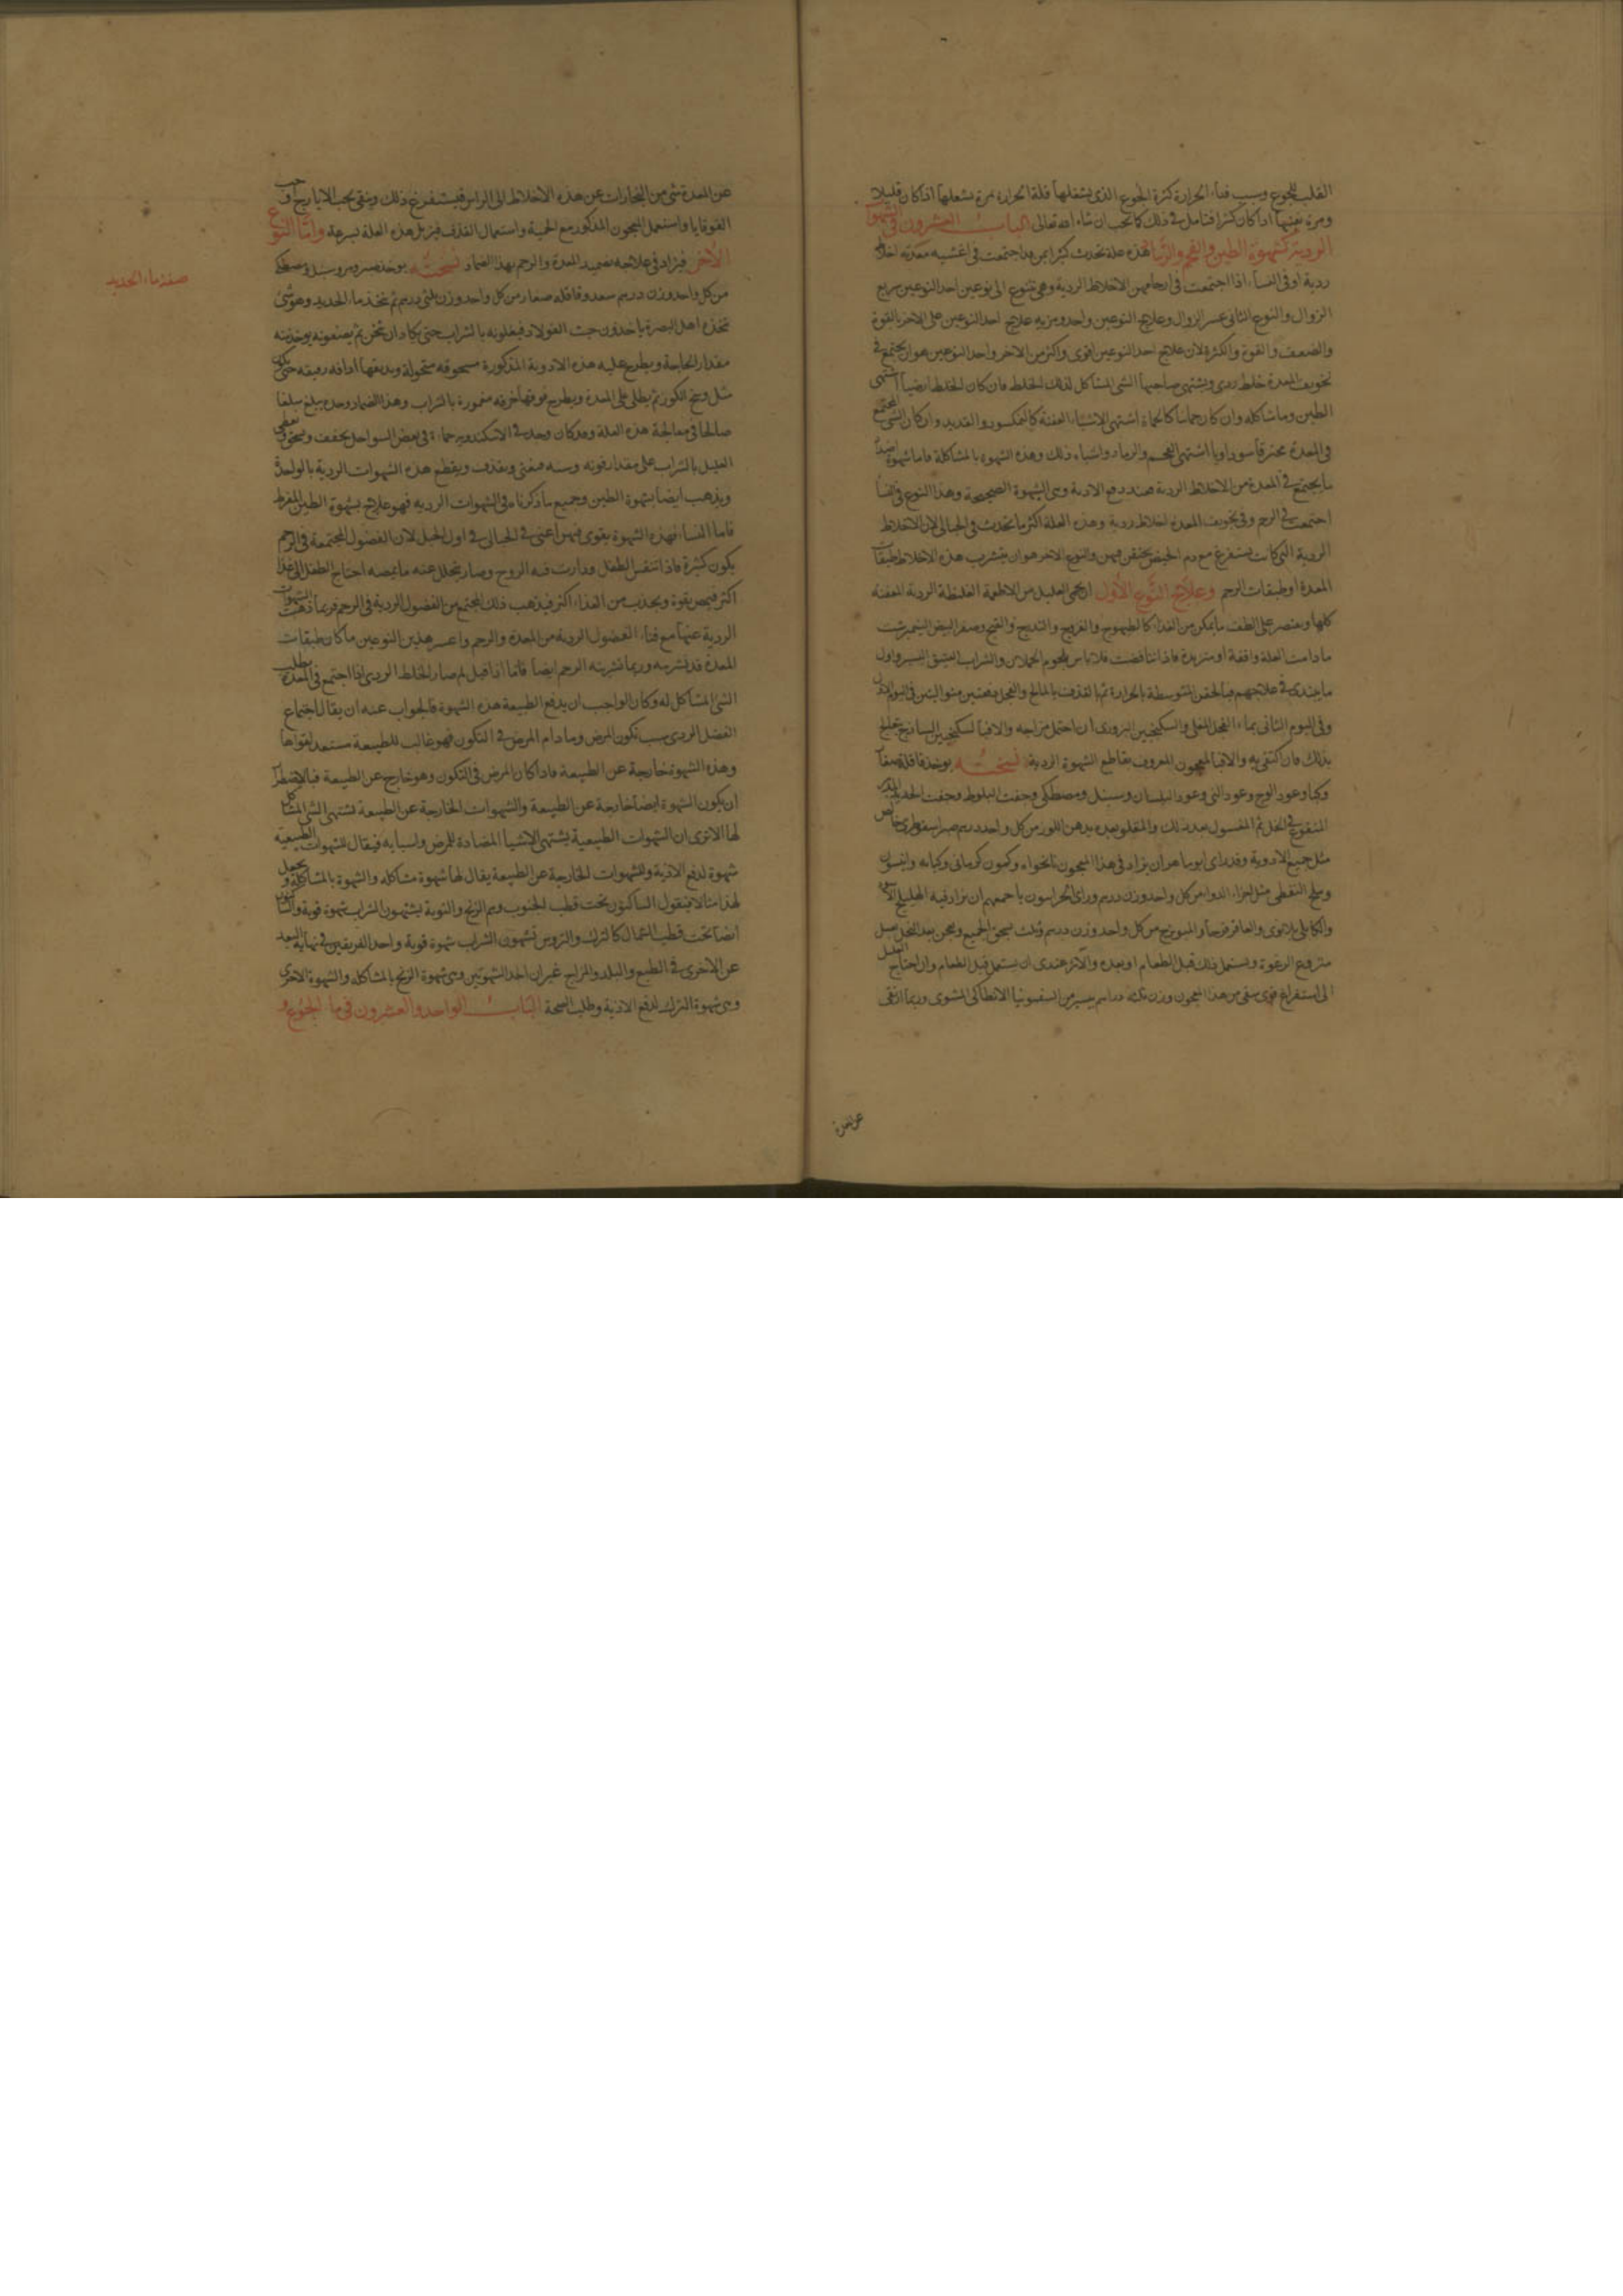 القلب للجوع وسبب فناء الحرارة كثرة الجوع الذى يشغلها قلة الحرارة مرة يشعلها اذا كان قليلا
ومرة يفنيها اذا كان كثيرا فتأمل فى ذلك كما تحب ان شاء الله تعالى الباب العشرون فى الشهوا
الردية كشهوة الطين والفحم والرماد هذه علة تحدث كثيرا بمن قد اجتمعت فى اغشية معدته اخلاط
ردية او فى النساء اذا اجتمعت فى ارحامهن الاخلاط الردية وهى تتنوع الى نوعين احد النوعين سريع
الزوال والنوع الثانى عسر الزوال وعلاج النوعين واحد ومزيه علاج احد النوعين على الاخر بالقوة
والضعف والقوة والكثرة لان علاج احد النوعين اقوى واكثر من الاخر واحد النوعين هو ان يجتمع فى
تجويف المعدة خلط ردى ويشتهى صاحبها الشى المشاكل لذلك الخلط فان كان الخلط ارضيا اشتهى
الطين وما شاكله وان كان حمائيا كالحماة اشتهى الاشياء العفنة كالنمكسود والقديد وان كان الشى المجتمع
فى المعدة محترقا سوداويا اشتهى الفحم والرماد واشباه ذلك وهذه الشهوة بالمشاكلة فاما شهوة ضد
ما يجتمع فى المعدة من الاخلاط الردية فعند دفع الاذية وهى الشهوة الصحيحة وهذا النوع فى النسا
اجتمعت فى الرحم وفى تجويف المعدة اخلاط ردية وهذه العلة اكثر ما تحدث فى الحبالى لان الاخلاط
الردية التى كانت تستفرغ مع دم الحيض يحتقن فيهن والنوع الاخر هو ان يتشرب هذه الاخلاط طبقات
المعدة او طبقات الرحم وعلاج النوع الأول ان يحمى العليل من الاطعمة الغليظة الردية العفنة
كلها ويقتصر على الطف ما يمكن من الغذا كالطيهوج والفروج والتدرج والقبج وصفر البيض النيمبرشت
ما دامت العلة واقفة او متزيدة فاذا تناقضت فلا باس بلحوم الحملان والشراب العتيق اليسير واول
ما يبتدى فى علاجهم فبالحقن المتوسطة بالحرارة ثم بالقذف بالمالح والفجل دفعتين متواليتين فى اليوم الاول
وفى اليوم الثانى بماء الفجل المغلى والسكنجبين البزورى ان احتمل مزاجه والا فبالسكنجبين الساذج يعالج
بذلك فان اكتفى به والا فبالمعجون المعروف بقاطع الشهوة الردية نسخته يوخذ قاقلة صغار
وكبار وعود الوج وعود النى وعود البلسان وسنبل ومصطكى وجفت البلوط وخبث الحديد المدبر
المنقوع فى الخل ثم المغسول بعد ذلك والمقلو بعده بدهن اللوز من كل واحد درهم صبر اسقوطرى خالص
مثل جميع الادوية وقد راى ابو ماهر ان يزاد فى هذا المعجون نانخواه وكمون كرمانى وكبابه وانيسون
وملح النفطى مثل اجزاء الدوا من كل واحد وزن درهم وراى الخراسيون باجمعهم ان يزاد فيه الهليلج الاسود
والكابلى بلا نوى والعاقرقرحا والميويزج من كل واحد وزن درهم وثلث يسحق الجميع ويعجن بعد النخل بعسل
منزوع الرغوة ويستعمل ذلك قبل الطعام او بعده والاثر عندى ان يستعمل قبل الطعام وان احتاج العليل
الى استفراغ قوى سقى من هذا المعجون وزن ثلثه دراهم بيسير من السقمونيا الانطاكى المشوى وربما ارتقى
عن المعدة
عن المعدة شى من البخارات عن هذه الاخلاط الى الراس فيستفرغ ذلك وينقى بحب الايارج او حب
القوقايا واستعمل المعجون المذكور مع الحمية واستعمال القذف فيزيل هذه العلة بسرعة واما النوع
الاخر فيزاد فى علاجه تضميد المعدة والرحم بهذا الضماد نسخته يوخذ صبر ومر وسنبل ومصطكى
من كل واحد وزن درهم سعد وقاقله صغار من كل واحد وزن ثلثى درهم ثم يتخذ ماء الحديد وهو شى
يتخذه اهل البصرة ياخذون خبث الفولاد فيغلونه بالشراب حتى يكاد ان يثخن ثم يصفونه يوخذ منه
مقدار الحاجة ويطرح عليه هذه الادوية المذكورة مسحوقه منخولة ويديفها ادافه رقيقه حتى يكون
مثل وسخ الكور ثم يطلى على المعدة ويطرح فوقها خرقه مغمورة بالشراب وهذا الضماد وحده يبلغ مبلغا
صالحا فى معالجة هذه العلة وقد كان وجد فى الاسكندريه حماءة فى بعض السواحل يجفف ويسحق ويسقى
العليل بالشراب على مقدار قوته وسنه فيغثى ويقذف ويقطع هذه الشهوات الردية بالواحدة
ويذهب ايضا بشهوة الطين وجميع ما ذكرنا فى الشهوات الرديه فهو علاج بشهوة الطين المفرط
فاما النسا فهذه الشهوة يقوى فيهن اعنى فى الحبالى فى اول الحبل لان الفضول المجتمعة فى الرحم
يكون كثيرة فاذا تنفس الطفل ودارت فيه الروح وصار يتحلل عنه ما يمصه احتاج الطفل الى غذا
اكثر فيمص بقوة ويجذب من الغذاء اكثر فيذهب ذلك المجتمع من الفضول الردية فى الرحم فربما ذهبت الشهوات
الردية عنها مع فناء الفضول الردية من المعدة والرحم واعسر هذين النوعين ما كان طبقات
المعدة قد تشربته وربما تشربته الرحم ايضا فاما اذا قيل لم صار الخلط الردى اذا اجتمع فى المعدة يطلب
الشى المشاكل له وكان الواجب ان يدفع الطبيعة هذه الشهوة فالجواب عنه ان يقال اجتماع
الفضل الردى سبب تكون المرض وما دام المرض فى التكون فهو غالب للطبيعة مستعد لقواها
وهذه الشهوة خارجة عن الطبيعة فاذا كان المرض فى التكون وهو خارج عن الطبيعة فبالاضطرار
ان يكون الشهوة ايضا خارجة عن الطبيعة والشهوات الخارجة عن الطبيعة تشتهى الشى المشاكل
لها الا ترى ان الشهوات الطبيعية يشتهى الاشيا المضادة للمرض واسبابه فيقال للشهوات الطبيعية
شهوة لدفع الاذية وللشهوات الخارجة عن الطبيعة يقال لها شهوة مشاكله والشهوة بالمشاكلة ويجعل
لهذا مثالا فيقول الساكنون تحت قطب الجنوب وهم الزنج والنوبة يشتهون الشراب شهوة قوية والساكنون
ايضا تحت قطب الشمال كالترك والروس يشتهون الشراب شهوة قوية واحد الفريقين فى نهاية البعد
عن الاخرى فى الطبع والبلد والمزاج غير ان احد الشهوتين وهى شهوة الزنج بالمشاكله والشهوة الاخرى
وهى شهوة الترك لدفع الاذية وطلب الصحة الباب الواحد والعشرون فى ما الجوع و
صفة ماء الحديد